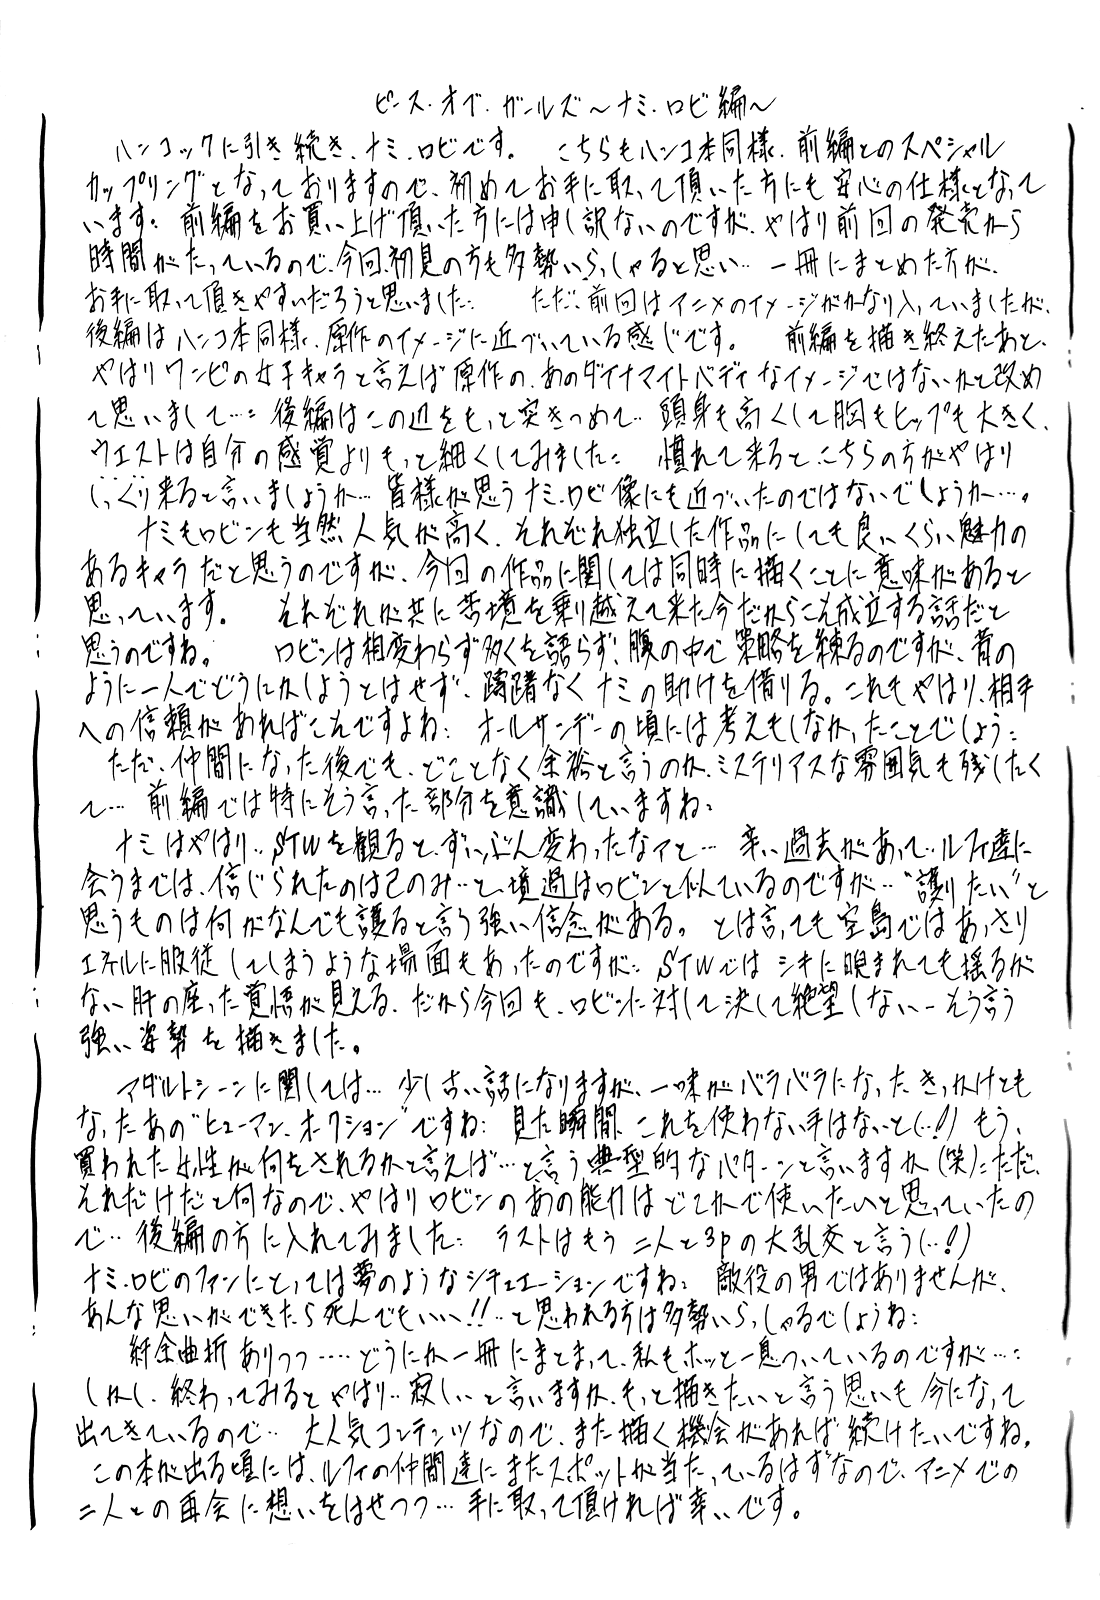 ピース・オブ・ガールズ～ナミ・ロビ編～
ハンコックに引き続き、ナミ、ロビです。 こちらもハンコ本同様、前編とのスペシャル
カップリングとなっておりますので、初めてお手に取って頂いた方にも安心の仕様となって
います。 前編をお買い上げ頂いた方には申し訳ないのですが、やはり前回の発売から
時間がたっているので、今回、初見の方も多勢いらっしゃると思い… 一冊にまとめた方が、
お手に取って頂きやすいだろうと思いました… ただ、前回はアニメのイメージがかなり入っていましたが、
後編はハンコ本同様、原作のイメージに近づいている感じです。 前編を描き終えたあと、
やはりワンピの女子キャラと言えば原作の、あのダイナマイトバディなイメージではないかと改め
て思いまして…： 後編はこの辺をもっと突きつめて… 頭身も高くして胸もヒップも大きく、
ウエストは自分の感覚よりもっと細くしてみました： 慣れて来ると、こちらの方がやはり
しっくり来ると言いましょうか… 皆様が思うナミ、ロビ像にも近づいたのではないでしょうか…。
ナミもロビンも当然人気が高く、それぞれ独立した作品にしても良いくらい魅力の
あるキャラだと思うのですが、今回の作品に関しては同時に描くことに意味があると
思っています。 それぞれが共に苦境を乗り越えて来た今だからこそ成立する話だと
思うのですね。 ロビンは相変わらず多くを語らず、腹の中で策略を練るのですが、昔の
ように一人でどうにかしようとはせず、躊躇なくナミの助けを借りる。これもやはり、相手
への信頼があればこそですよね： オールサンデーの頃には考えもしなかったことでしょう：
ただ、仲間になった後でも、どことなく余裕と言うのか、ミステリアスな雰囲気も残したく
て… 前編では特にそう言った部分を意識していますね：
ナミはやはり‥STWを観ると、ずいぶん変わったなァと… 辛い過去があって‥ルフィ達に
会うまでは、信じられたのは己のみ…と、境遇はロビンと似ているのですが…“護りたい”と
思うものは何がなんでも護ると言う強い信念がある。とは言っても空島ではあっさり
エネルに服従してしまうような場面もあったのですが： STWではシキに睨まれても揺るが
ない肝の座った覚悟が見える、だから今回も、ロビンに対して決して絶望しない―そう言う
強い姿勢を描きました。
アダルトシーンに関しては… 少し古い話になりますが、一味がバラバラになったきっかけとも
なったあの“ヒューマン、オークション”ですね： 見た瞬間、これを使わない手はないと(…!) もう、
買われた女性が何をされるかと言えば…と言う典型的なパターンと言いますか(笑)：ただ、
それだけだと何なので、やはりロビンのあの能力はどこかで使いたいと思っていたの
で‥後編の方に入れてみました： ラストはもう二人と3Pの大乱交と言う(…!)
ナミ、ロビのファンにとっては夢のようなシチュエーションですね： 敵役の男ではありませんが、
あんな思いができたら死んでもいい!!…と思われる方は多勢いらっしゃるでしょうね：
紆余曲折ありつつ…‥どうにか一冊にまとまって、私もホッと一息ついているのですが…：
しかし、終わってみるとやはり‥寂しいと言いますか、もっと描きたいと言う思いも今になって
出てきているので‥ 大人気コンテンツなので、また描く機会があれば続けたいですね。
この本が出る頃には、ルフィの仲間達にまたスポットが当たっているはずなので、アニメでの
二人との再会に想いをはせつつ… 手に取って頂ければ幸いです。